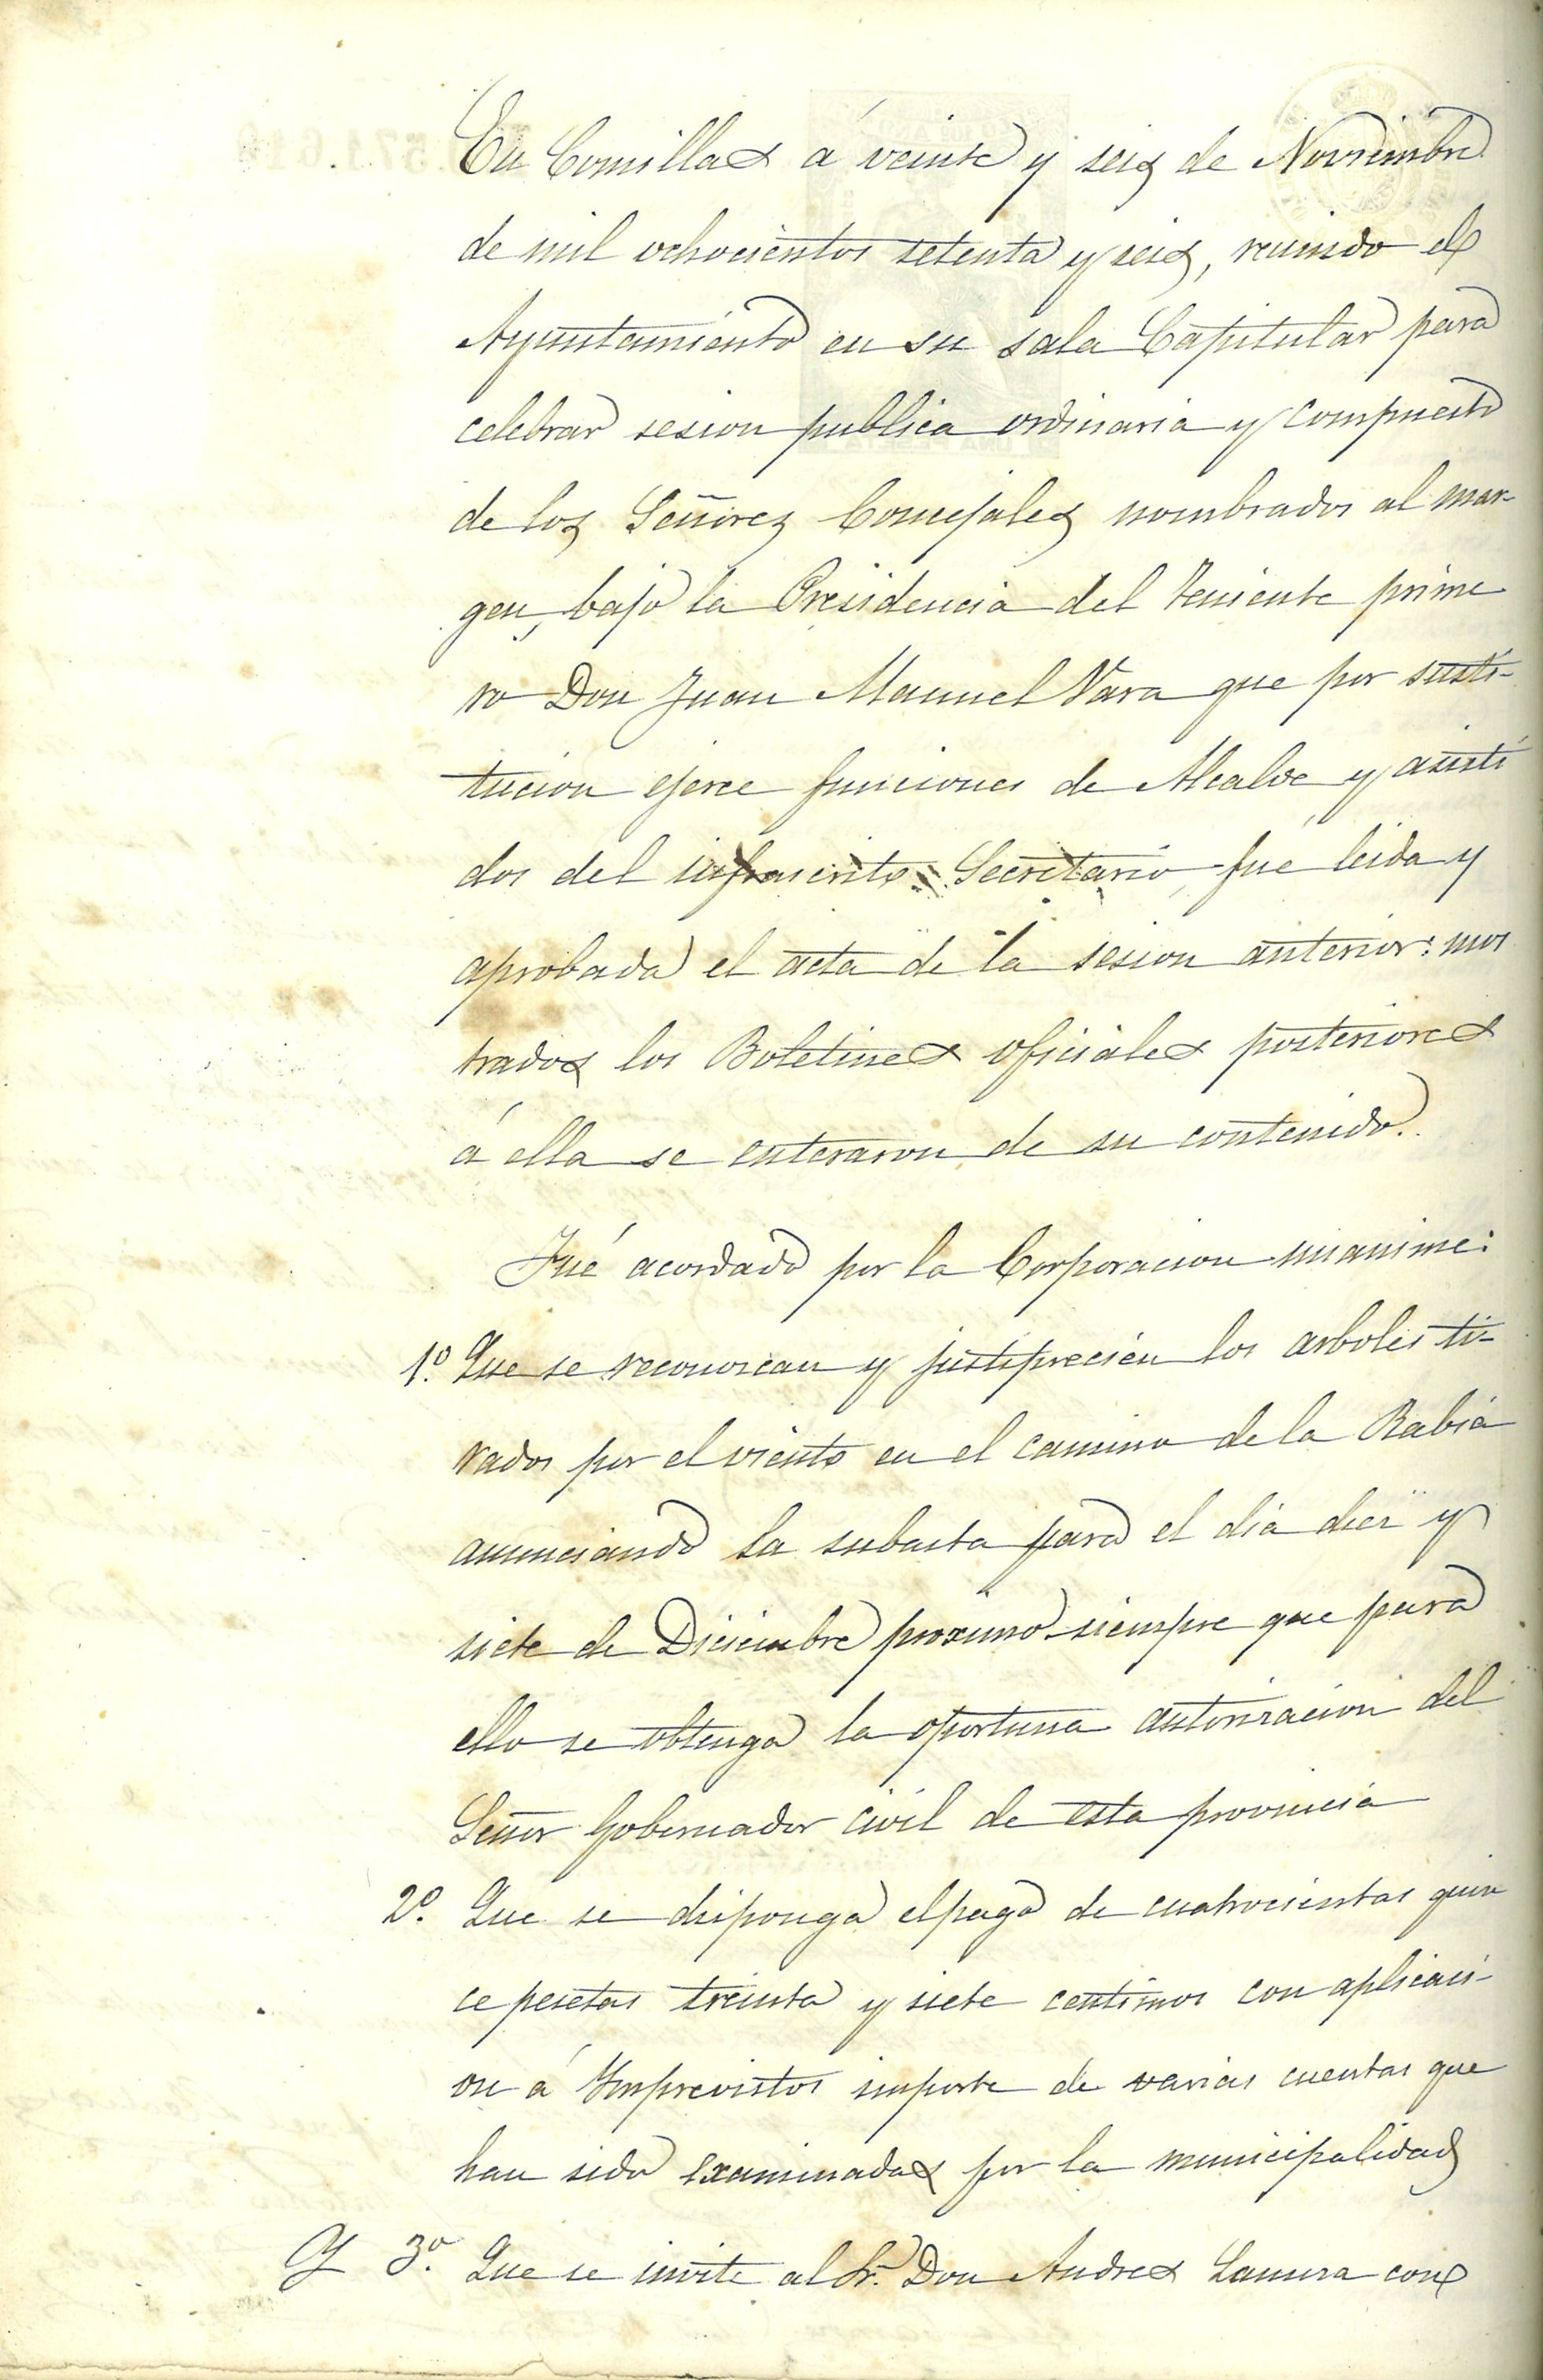 En Comillas á veinte y seis de Noviembre
de mil ochocientos setenta y seis, reunido el
Ayuntamiento en su sala Capitular para
celebrar sesion publica ordinaria y compuesto
de los Señores Concejales nombrados al mar-
gen, bajo la Presidencia del Teniente prime
ro Don Juan Manuel Vara que por susti-
tucion ejerce funciones de Alcalde y asisti
dos del infrascrito Secretario, fué leida y
aprobada el acta de la sesion anterior: mos
trados los Boletines oficiales posteriores
á ella se enteraron de su contenido.
Fué acordado por la Corporacion unanime:
1º. Que se reconozcan y justiprecien los arboles ti-
rados por el viento en el camino de la Rabia
anunciando la subasta para el dia diez y
siete de Diciembre proximo siempre que para
ello se obtenga la oportuna autorizacion del
Señor Gobernador civil de esta provincia
2º. Que se disponga el pago de cuatrocientas quin
ce pesetas treinta y siete centimos con aplicaci-
on á Imprevistos importe de varias cuentas que
han sido examinadas por la municipalidad
Y 3º. Que se invite al Sr. Don Andres Lamura con